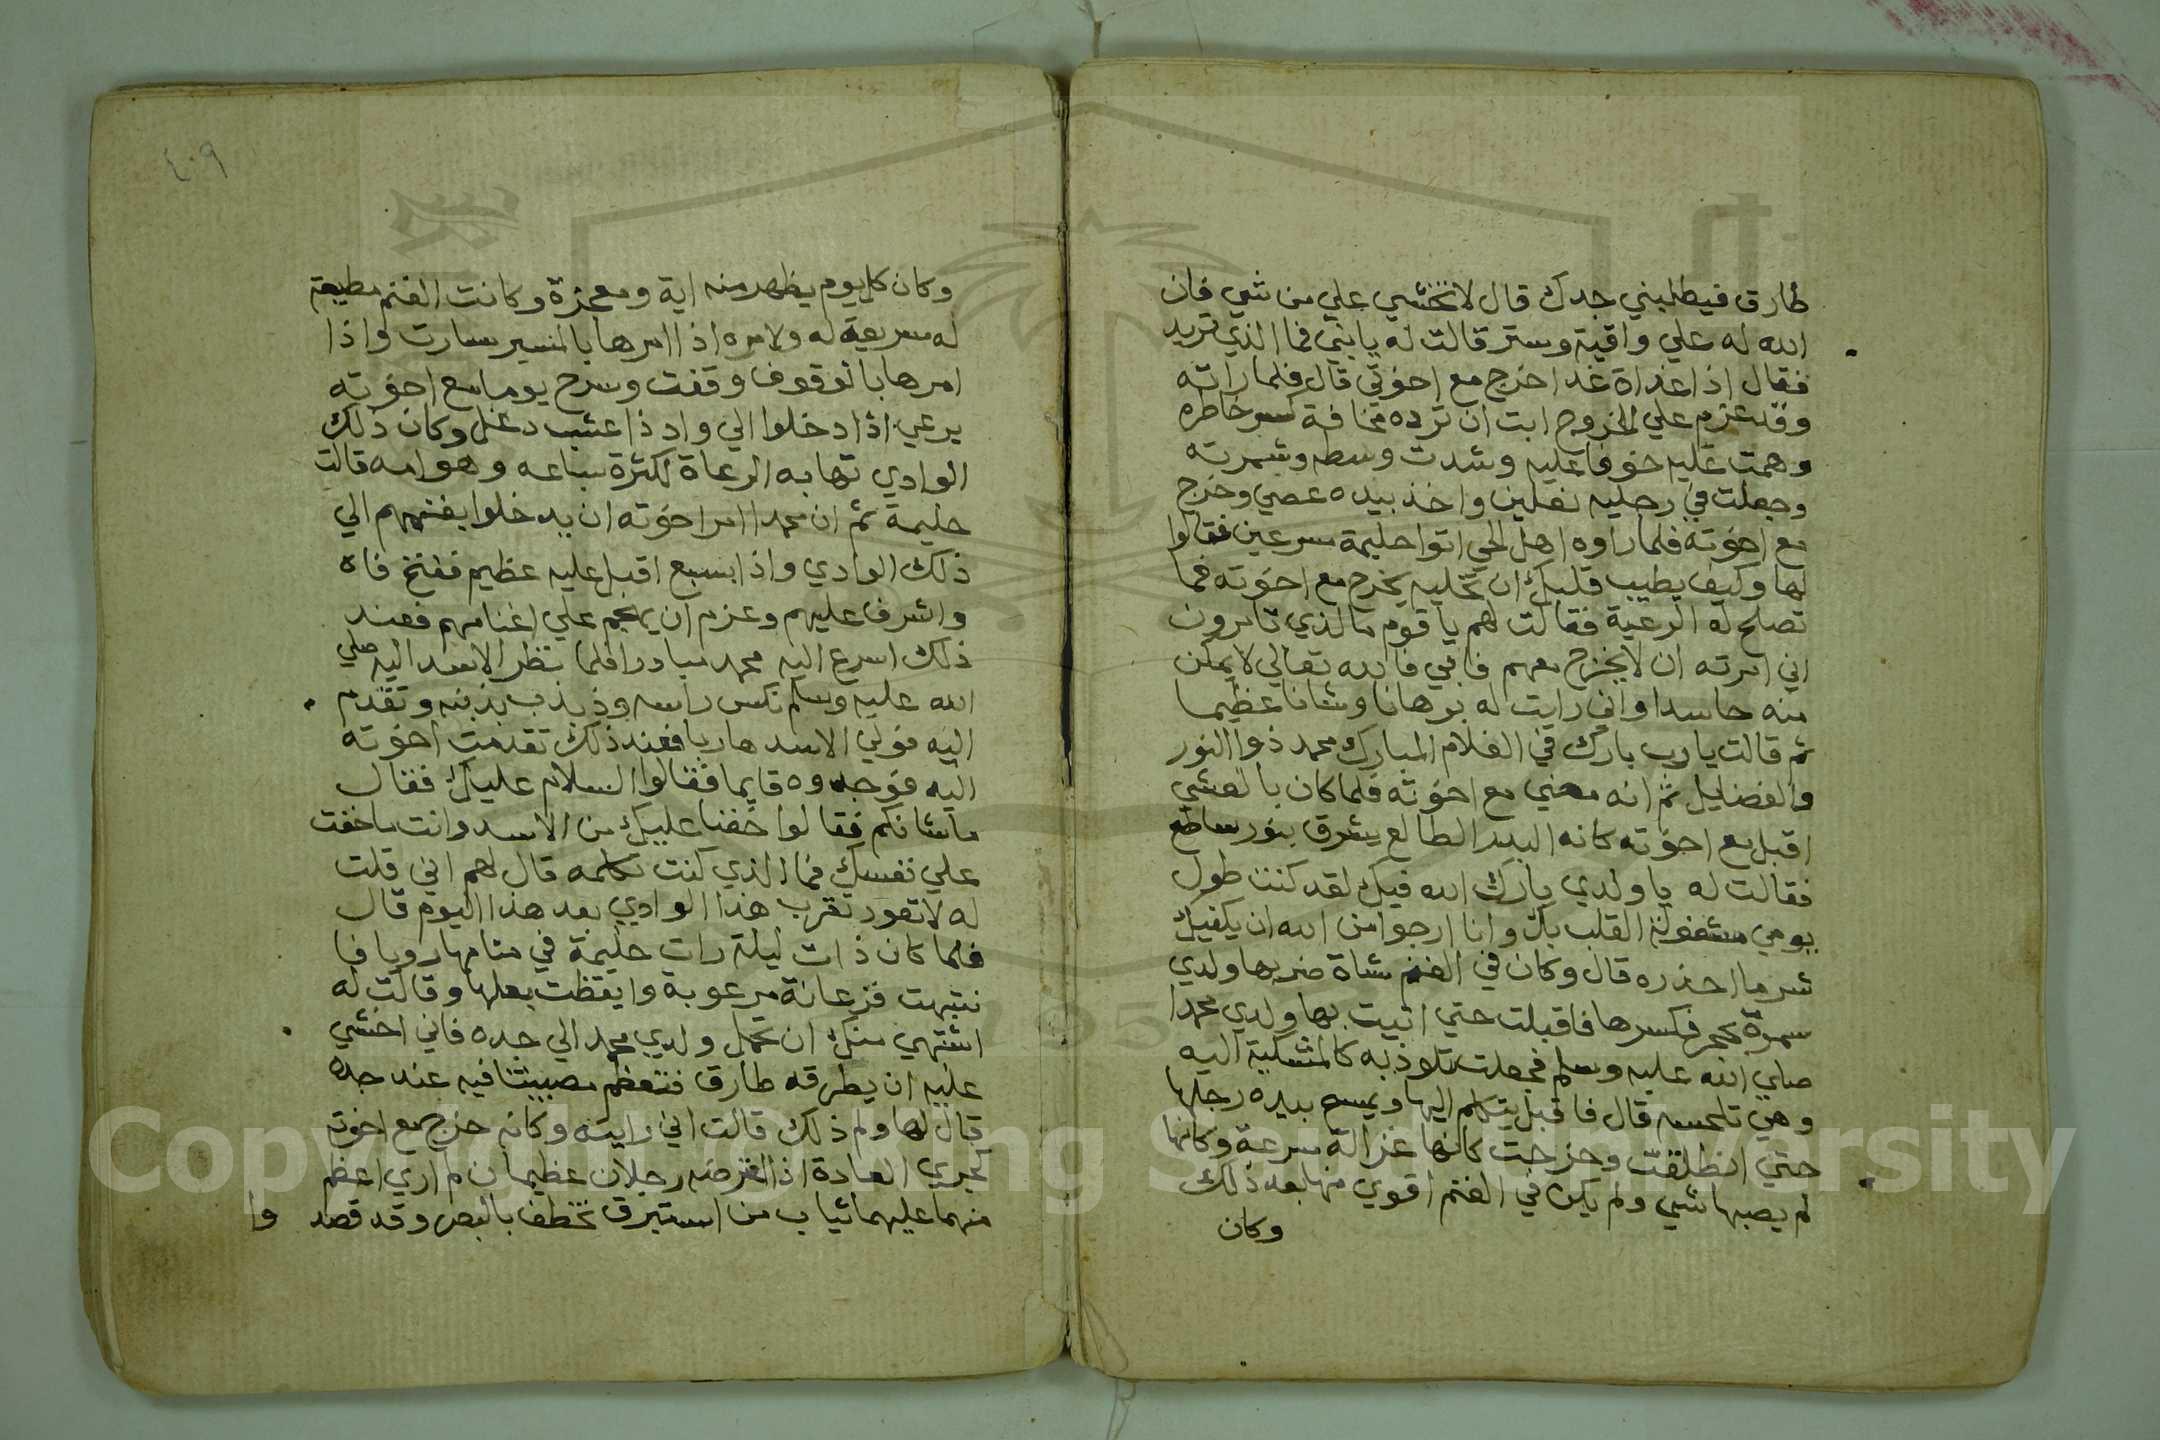 طارق فيطلبني جدك قال لا تخشي علي من شي فان
الله له علي واقية وستر قالت له يا بني فما الذي تريد
فقال اذا غداة غد اخرج مع اخوتي قال فلما راته
وقد عزم علي الخروج ابت ان ترده مخافة كسر خاطره
وهمت عليه خوفا عليه وشدت وسطه وشمرته
وجعلت في رجليه نعلين واخذ بيده عصي وخرج
مع اخوته فلما راوه اهل الحي اتوا حليمة مسرعين فقالوا
لها وكيف يطيب قلبك ان تخليه يخرج مع اخوته فما
تصلح له الرعية فقالت لهم يا قوم ما لذي تامرون
اني امرته ان لا يخرج معهم فابي فالله تعالي لا يمكن
منه حاسدا واني رايت له برهانا وشانا عظيما
ثم قالت يا رب بارك في الغلام المبارك محمد ذوا النور
والفضايل ثم انه مضي مع اخوته فلما كان بالعشي
اقبل مع اخوته كانه البدر الطالع يشرق بنور ساطع
فقالت له يا ولدي بارك الله فيك لقد كنت طول
يومي مشغولة القلب بك وانا ارجوا من الله ان يكفيك
شر ما احذره قال وكان في الغنم شاة ضربها ولدي
سمرة بحجر فكسرها فاقبلت حتي اتيت بها ولدي محمدا
صلي الله عليه وسلم فجعلت تلوذ به كالمشتكية اليه
وهي تلحسه قال فاقبل يتكلم اليها ويمسح بيده رجلها
حتي انطلقت وخرجت كانها غزالة سرعة وكانها
لم يصبها شي ولم يكن في الغنم اقوي منها بعد ذلك
وكان
٤٠٩
وكان كل يوم يظهر منه اية ومعجزة وكانت الغنم مطيعة
له سريعة له ولامره اذا امرها بالمسير سارت واذا
امرها بالوقوف وقفت وسرح يوما مع اخوته
يرعي اذا دخلوا الي واد ذا عشب دغل وكان ذلك
الوادي تهابه الرعاة لكثرة سباعه وهوامه قالت
حليمة ثم ان محمدا امر اخوته ان يدخلوا بغنمهم الي
ذلك الوادي واذا بسبع اقبل عليه عظيم ففتح فاه
واشرف عليهم وعزم ان يهجم علي اغنامهم فعند
ذلك اسرع اليه محمد مبادرا فلما نظر الاسد اليه صلي
الله عليه وسلم نكس راسه وذبذب بذنبه وتقدم
اليه فولي الاسد هاربا فعند ذلك تقدمت اخوته
اليه فوجدوه قايما فقالوا السلام عليك فقال
ما شانكم فقالوا خفنا عليك من الاسد وانت ما خفت
علي نفسك فما الذي كنت تكلمه قال لهم اني قلت
له لا تعود تقرب هذا الوادي بعد هذا اليوم قال
فلما كان ذات ليلة رات حليمة في منامها رويا فا
نتبهت فزعانة مرعوبة وايقظت بعلها وقالت له
اشتهي منك ان تحمل ولدي محمد الي جده فاني اخشي
عليه ان يطرقه طارق فتعظم مصيبتنا فيه عند جده
قال لها ولم ذلك قالت اني رايته وكانه خرج مع اخوته
كجري العادة اذ اعترضه رجلان عظيمان لم اري اعظم
منهما عليهما ثياب من استبرق تخطف بالبصر وقد قصد
وا